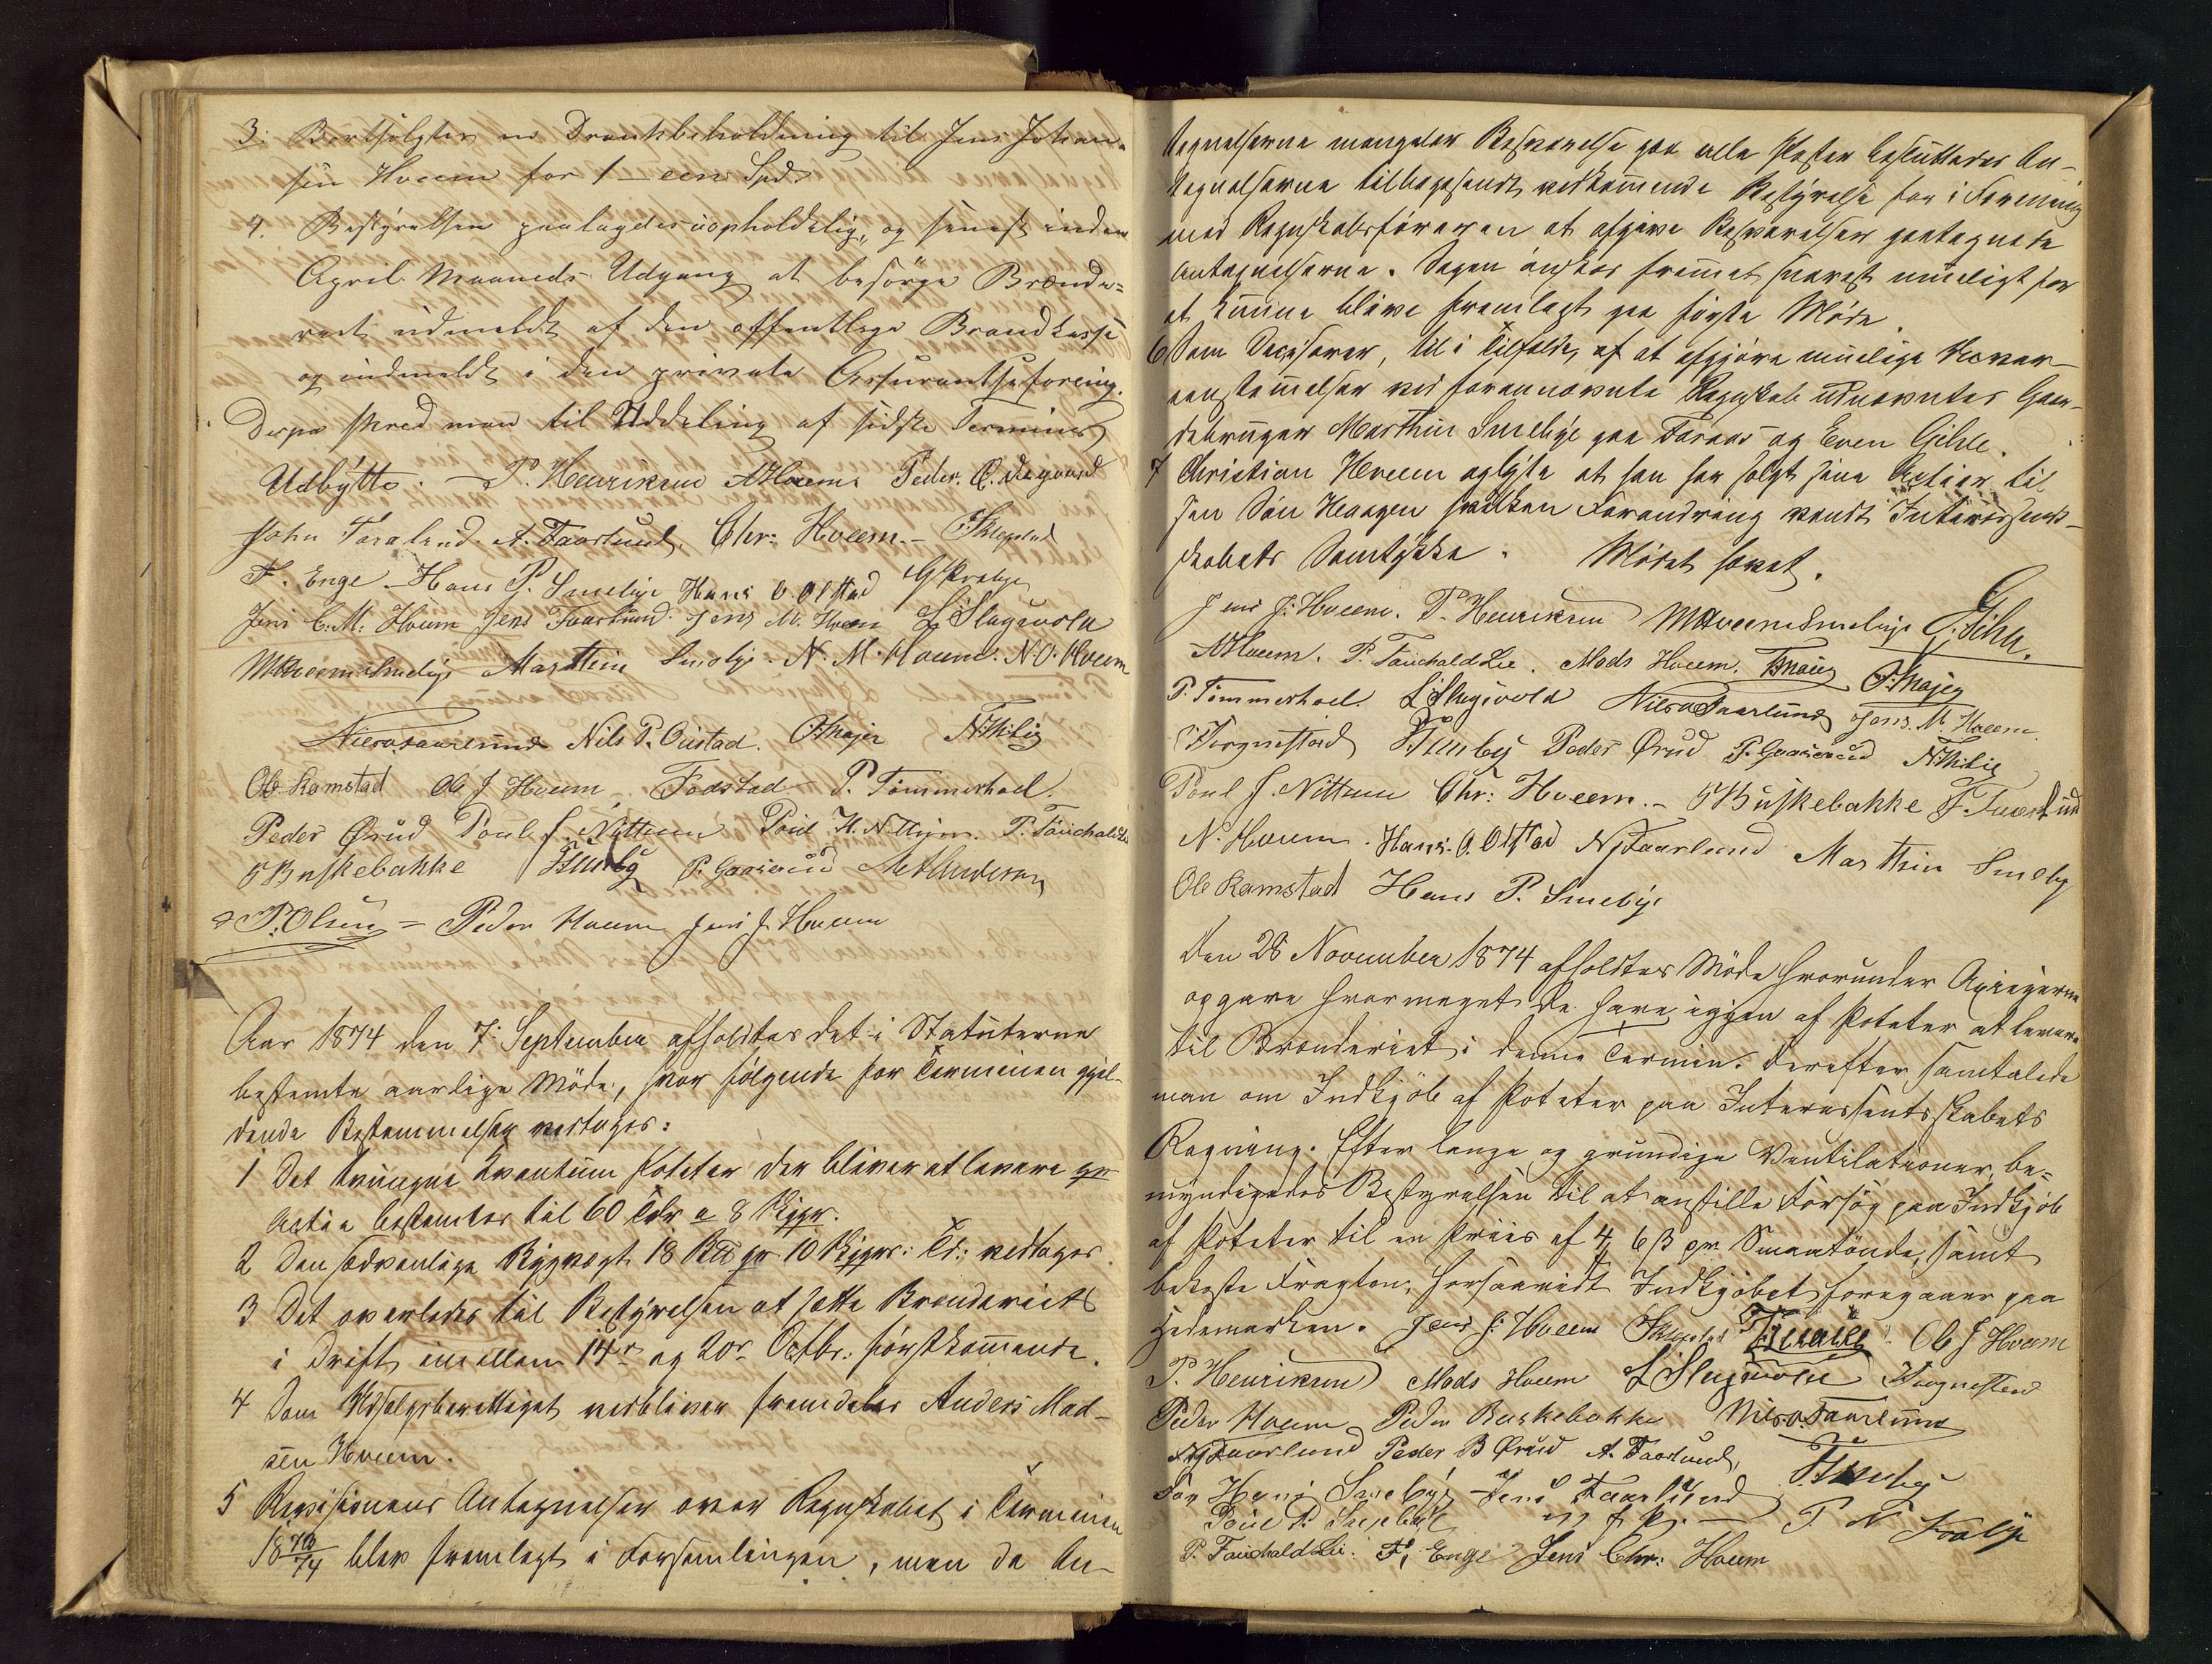 3: Bortsolgtes en Drankbeholdning til Jens Johan-
sen Hveem for 1 – een Spd.
4. Bestyrelsen paalagdes uopholdelig, og senest inden
April Maaneds Udgang at besørge Brænde-
riet udmeldt af den offentlige Brandkasse
og indmeldt i den private Assurantseforening.
Derpaa skred man til Uddeling af sidste Termins
Udbytte. – P. Henriksen AHveem Peder O. Degaard
John Faralund. A. Faarlund. Chr: Hveem. – Skjepstad
F. Enge – Hans P. Smebye Hans O. Olstad
Jens C. M. Hveem Jens Faarlund. Jens M. Hveem L Slagsvold
MHveem Smebye Marthin Smebye. N. M. Hveem. N. O. Hveem
Niels O. Faarlund Nils P. Ovistad. OThajer NThilie
Ole Ramstad Ole J Hveem, Fodstad P. Tømmerhoel.
Peder Ørud Poul J. Nettum Poul H. Nettum. P. FauchaldLie
OBuskebakke P. Gaaserud M Andersen
P. Olsen = Peder Hveem Jens J. Hveem
Aar 1874 den 7. September afholdtes det i Statuterne
bestemte aarlige Møde, hvor følgende for Terminen gjæl-
dende Bestemmelser vedtoges:
1 Det tvungne Kvantum Poteter der bliver at levere pr
Actie bestemtes til 60 Tdr a 8 Skjpr.
2 Den sædvanlige Bygvægt 18 pr 10 Skjpr: Td: vedtoges.
3 Det overlodes til Bestyrelsen at sætte Brænderiet
i Drift imellem 14de og 20de Octbr. førstkommende.
4 Som Udsalgsberettiget vedbliver fremdeles Anders Mad-
sen Hveem.
5 Revisionens Antegnelser over Regnskabet i Terminen
1873/74 blev fremlagt i Forsamlingen, men da An-
tegnelserne mangeler Besvarelse paa alle Poster besluttedes An-
tegnelserne tilbagesendt vedkommende Bestyrelse for i Forening
med Regnskabsføreren at afgive Besvarelser paategnede
Antegnelserne. Sagen ønskes fremmet snarest mueligt for
at kunne blive fremlagt paa første Møde.
6 Som Decisorer, til i Tilfælde af at afgjøre muelige Uover-
eenstemmelser ved forannævnte Regnskab udnævntes Gaar-
debruger Marthin Smebye paa Faraas og Even Gihle.
7 Christian Hveem oplyste at han har solgt sine Actier til
sin Søn Haagen hvilken Forandring vandt Interessent-
skabets Samtykke. Mødet hævet.
Jens J. Hveem. P. Henriksen MHveem Smebye E. Gihle.
AHveem. P. FauchaldLie. Mads Hveem. OThajer
P. Tømmerhoel. L Slagsvold Niels O. Faarlund Jens. M. Hveem.
Peder Ørud P. Gaaserud NThilie
Poul J. Nettum Chr: Hveem. – OBuskebakke J. Faarlund
N. Hveem. Hans. O. Olstad NJFaarlund Marthin Smeby
Ole Ramstad Hans P. Smebye
Den 28 November 1874 afholdtes Møde hvorunder Axieierne
opgave hvor meget de have igjen af Poteter at levere
til Brænderiet i denne Termin. Derefter samtalede
man om Indkjøb af Poteter paa Interessentsskabets
Regning. Efter lange og grundige Ventilationer, be-
myndigedes Bestyrelsen til at anstille Forsøg paa Indkjøb
af Poteter til en Priis af 4, 6 ß pr. Smaatønde, samt
bekoste Fragten, forsaavidt Indkjøbet foregaaer paa
Hedemarken. Jens J. Hveem Skjepstad Ole J Hveem
P. Henriksen Mads Hveem L Slagsvold
Peder Hveem Peder Buskebakke Niels O. Faarlund
NJFaarlund Peder B Ørud A. Faarlund,
for Hans Smebye Jens Faarlund
m. f. P.
P. FauchaldLie. F. Enge Jens Chr: Hveem